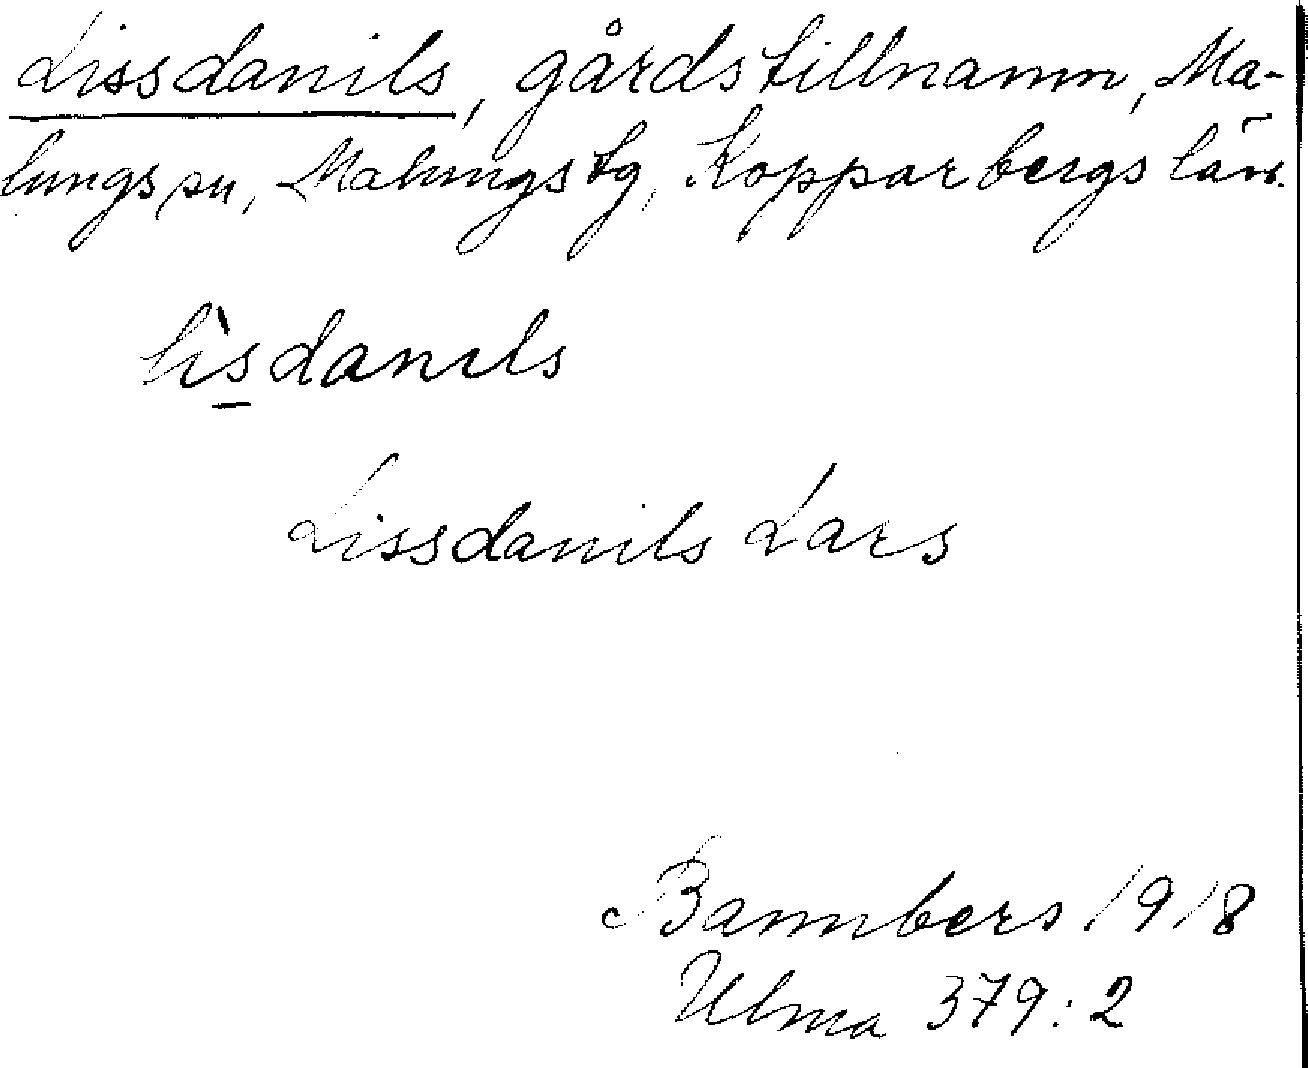 Lissdanils, gårdstillnamn, Ma-
lungs sn, Malungs tg, Kopparbergs län.
lìs̲danils
Lissdanils Lars
Bannbers 1918
Ulma 379:2